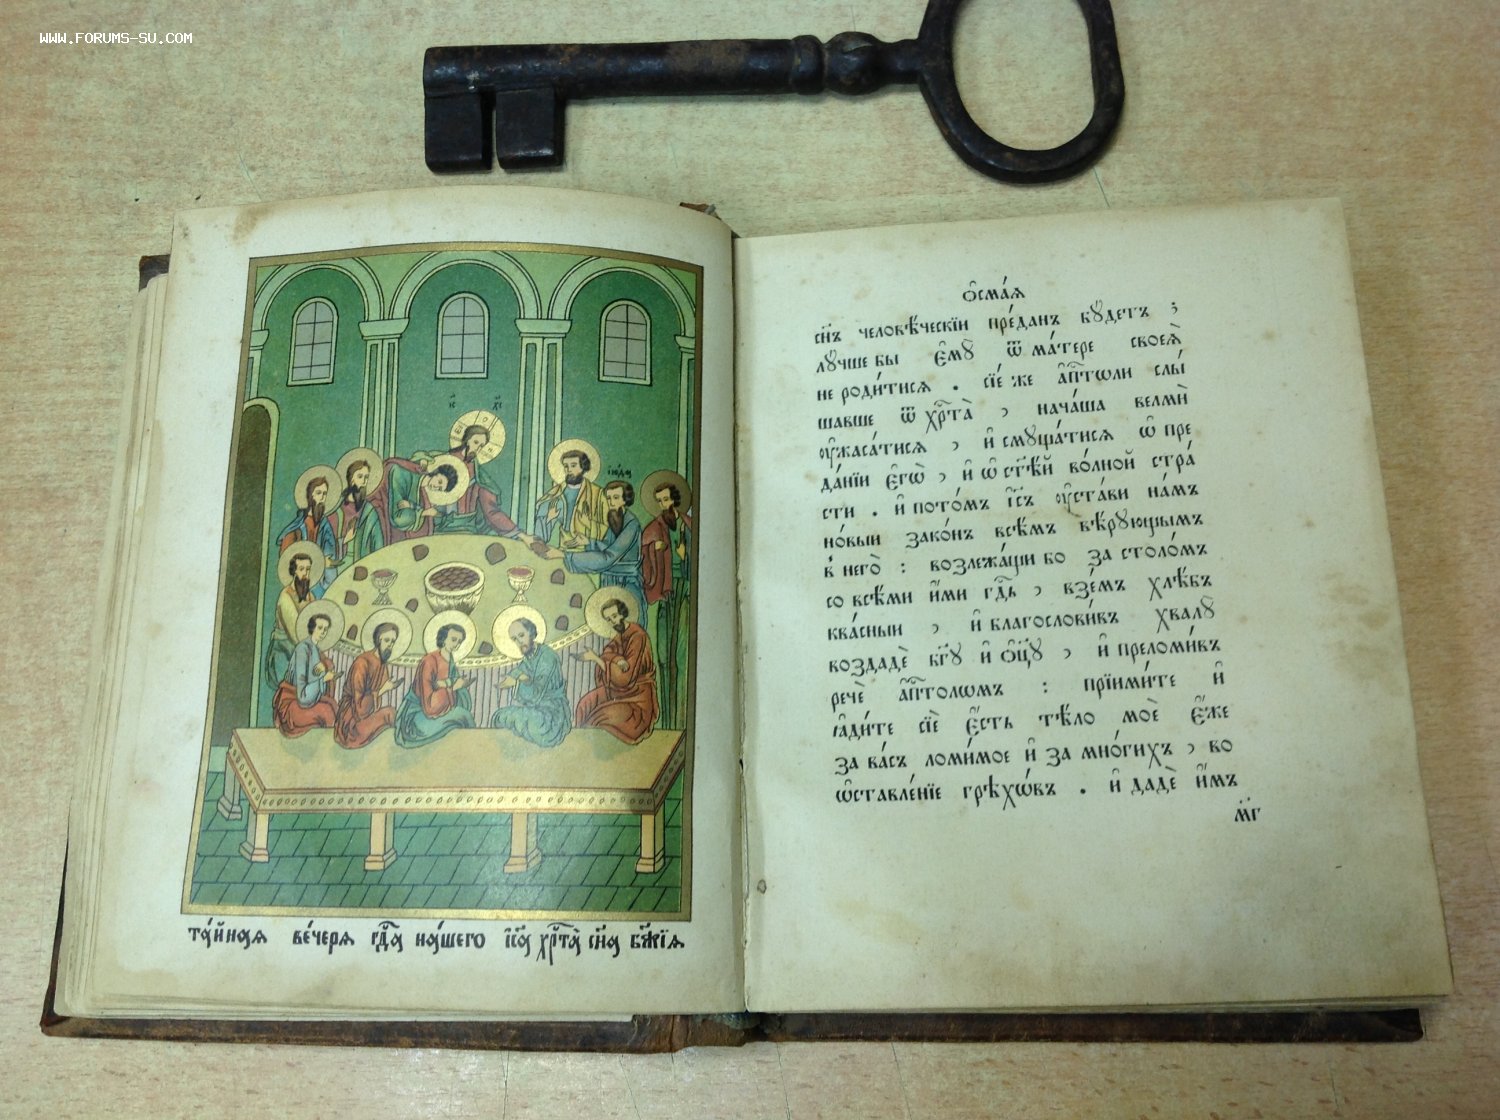 WWW.FORUMS-SU.COM
і҃с х҃с
іюда
та́йная вече́ря гдⷭ҇а на́шего і҆сⷭ҇а хрⷭ҇та̀ сн҃а бж҃їѧ
ѻ҆сма́ѧ
сн҃ъ человѣ́ческїи пре́данъ бꙋ́детъ ;
лꙋ́чше бы є҆мꙋ̀ ѿ ма́тере своеѧ̀
не роди́тисѧ . сїе́ же а҆пⷭ҇тѡли слы́
шавше ѿ хрⷭ҇та̀ , нача́ша велмѝ
ᲂу҆жаса́тисѧ , и҆ смꙋща́тисѧ ѡ҆ пре
да́нїи є҆гѡ̀ , и҆ ѡ҆ ст҃ѣ́й во́лной стра́
сти . и҆ пото́мъ і҆с҃ъ ᲂу҆ста́ви на́мъ
но́выи зако́нъ всѣ́мъ вѣ́рꙋющымъ
в него̀ : возлежа́щи бо за столо́мъ
со всѣ́ми и҆́ми гдⷭ҇ь , взе́мъ хлѣ́бъ
ква́сныи , и҆ благослови́въ хвалꙋ̀
воздадѐ бг҃ꙋ и҆ ѻ҆ц҃ꙋ̀ , и҆ преломи́въ
речѐ а҆пⷭ҇толѡмъ : прїими́те и҆
ꙗ҆ди́те сїѐ є҆́сть тѣ́ло моѐ є҆́же
за ва́съ ломи́мое и҆ за мно́гихъ , во
ѡ҆ставле́нїе грѣхѡ́въ . и҆ дадѐ и҆̀мъ
м҃г